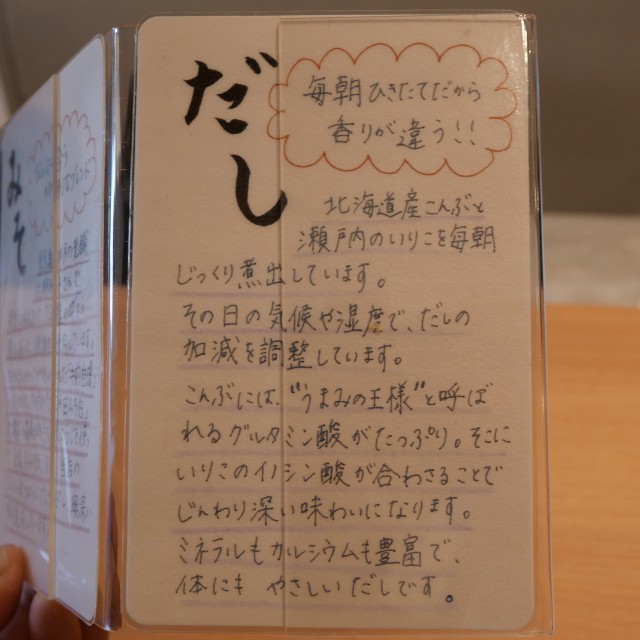 だし
毎朝ひきたてだから
香りが違う!!
北海道産こんぶと
瀬戸内のいりこを毎朝
じっくり煮出しています。
その日の気候や湿度で、だしの
加減を調整しています。
こんぶには、"うまみの王様"と呼ば
れるグルタミン酸がたっぷり。そこに
いりこのイノシン酸が合わさることで
じんわり深い味わいになります。
ミネラルもカルシウムも豊富で、
体にも やさしいだしです。
みそ